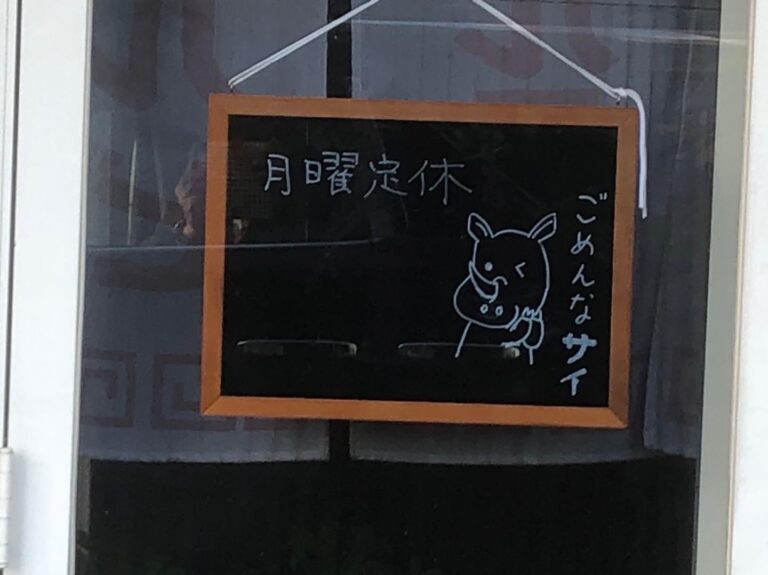 月曜定休
ごめんなサイ